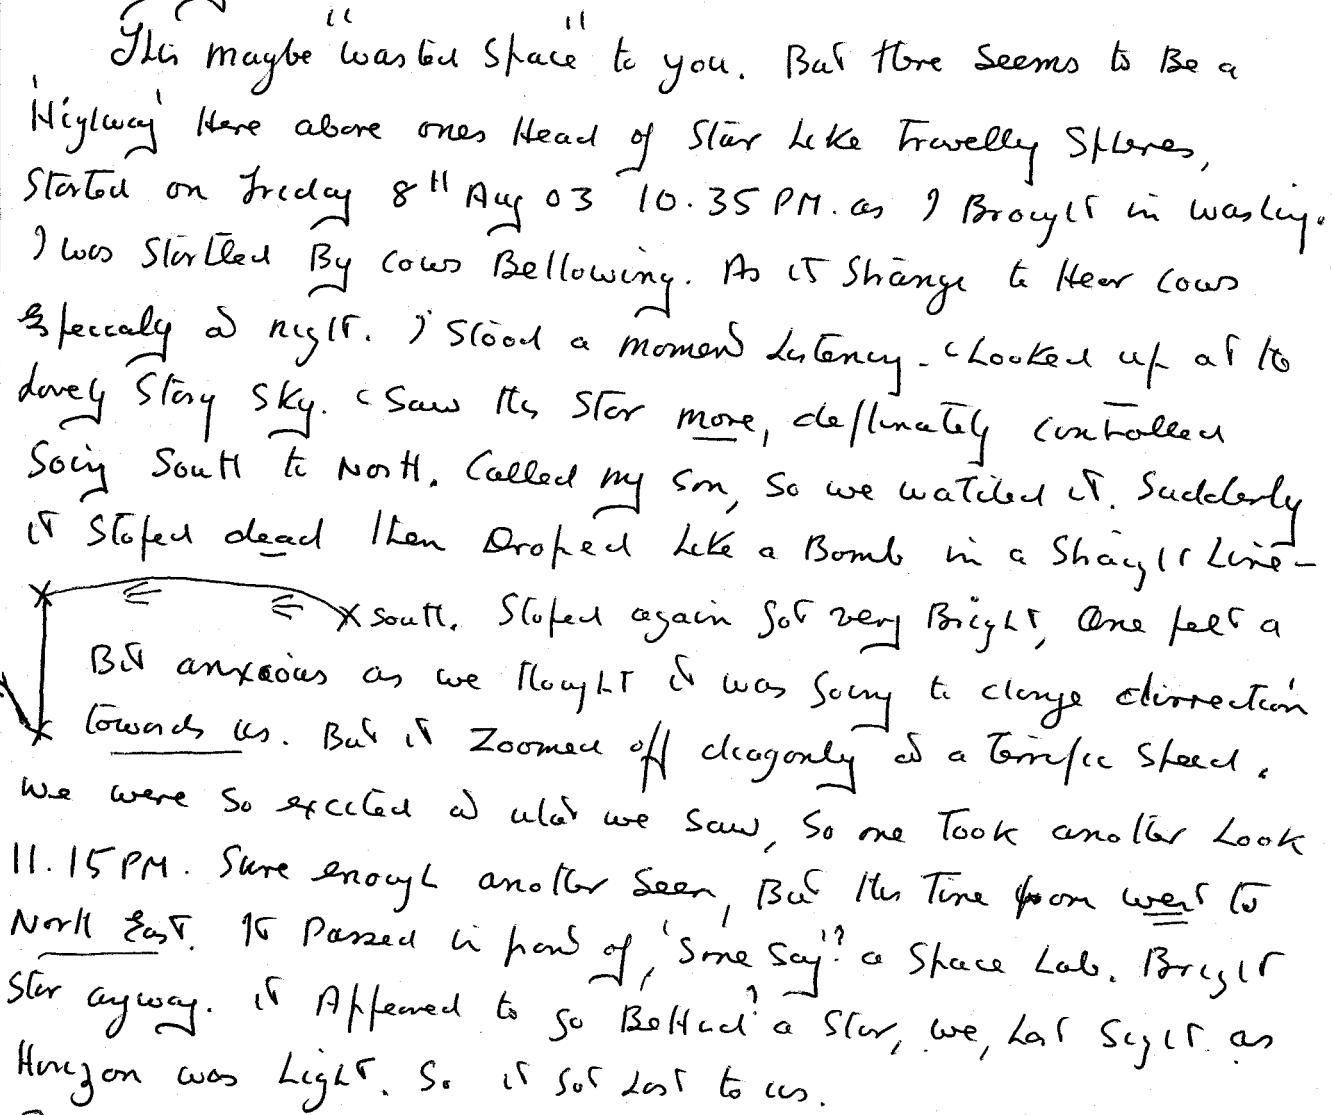 This maybe "wasted space" to you. But there seems to Be a
'Highway' Here above ones Head of Star Like Travelly Spheres,
Started on Friday 8th Aug 03 10.35 PM. as I Brought in washing.
I was Startled By cows Bellowing. As it Strange to Hear cows
Especcaly at night. I stood a moment Listency. Looked up at to
Lovely Stary Sky. Saw this Star move, deffinately controlled
Going South to North. Called my Son, So we watched it. Suddenly
it Stoped dead then Droped Like a Bomb in a Straight Line -
South. Stoped again Got very Bright, One felt a
Bit anxious as we thought it was Going to change dirrection
towards us. But it Zoomed off diagonly at a Terrific Speed.
We were So excited at what we Saw, So one Took another Look
11.15 PM. Sure enough another Seen, But this Time from west to
North East. It Passed in front of, 'Some Say'? a Space Lab. Bright
Star anyway. it Appeared to go Behind? a Star, we, Lost Sight as
Horizon was Light. So it Got Lost to us.